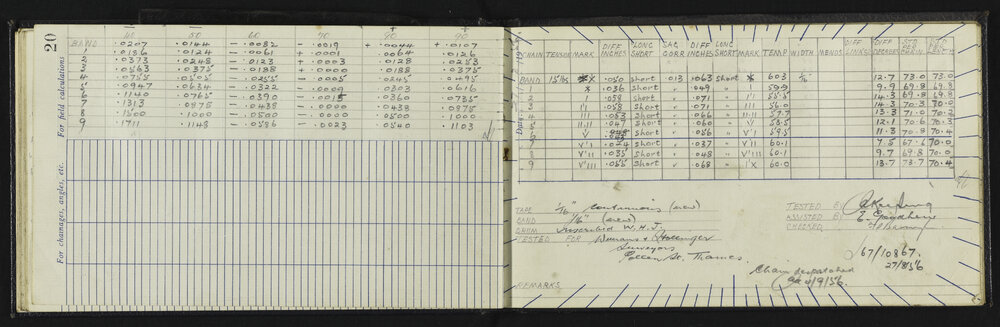 20
For field calculations
For chainages, angles, etc.
40 50 60 70 80 90
BAND .0207 .0144 - .0082 - .0019 + .0044 + .0107
1 .0186 .0124 - .0061 + .0001 .0064 .0126
2 .0373 .0248 - .0123 + .0003 .0128 .0253
3 .0563 .0375 - .0188 + .0000 .0188 .0375
4 .0755 .0505 - .0255 - .0005 .0245 .0495
5 .0947 .0634 - .0322 - .0009 .0303 .0616
6 .1140 .0765 - .0390 - .0015 .0360 .0735
7 .1313 .0875 - .0438 - .0000 .0438 .0875
8 .1500 .1000 - .0500 - .0000 .0500 .1000
9 .1711 .1148 - .0586 - .0023 .0540 .1103
CHAIN TENSION MARK DIFF INCHES LONG SHORT SAG CORR DIFF INCHES LONG SHORT MARK TEMP WIDTH MENDS DIFF LINKS DIFF DEGREES STD DEG
BAND 15 lbs .050 Short .013 .063 Short 60.3 12.7 73.0 73.0
1 .036 Short " .049 " 59.9 9.9 69.8 69.8
2 .058 Short " .071 " 14.3 69.8
3 .058 Short " .071 " III 56.0 14.3 70.3 70.0
4 .053 Short " .066 " 57.7 13.3 71.0 70.2
5 .047 Short " .060 " V 58.5 12.1 70.6 70.3
6 V Short " .056 " VI 59.5 11.3 70.8 70.4
7 VII .024 Short " .037 " VII 60.1 7.5 67.6 70.0
8 VIII .035 Short " .048 " VIII 60.1 9.7 69.8 70.0
9 VIII .055 Short " .068 " IX 60.0 13.7 73.7 70.4
TAPE 1/16" Continuous (new)
BAND 1/16" (new)
CHAIN Inscribed W.H.J.
TESTED FOR
Surveyors
Pollen St. Thames.
TESTED BY
ASSISTED BY
CHECKED
67/10867.
27/8/56
Chain despatched
4/9/56.
REMARKS